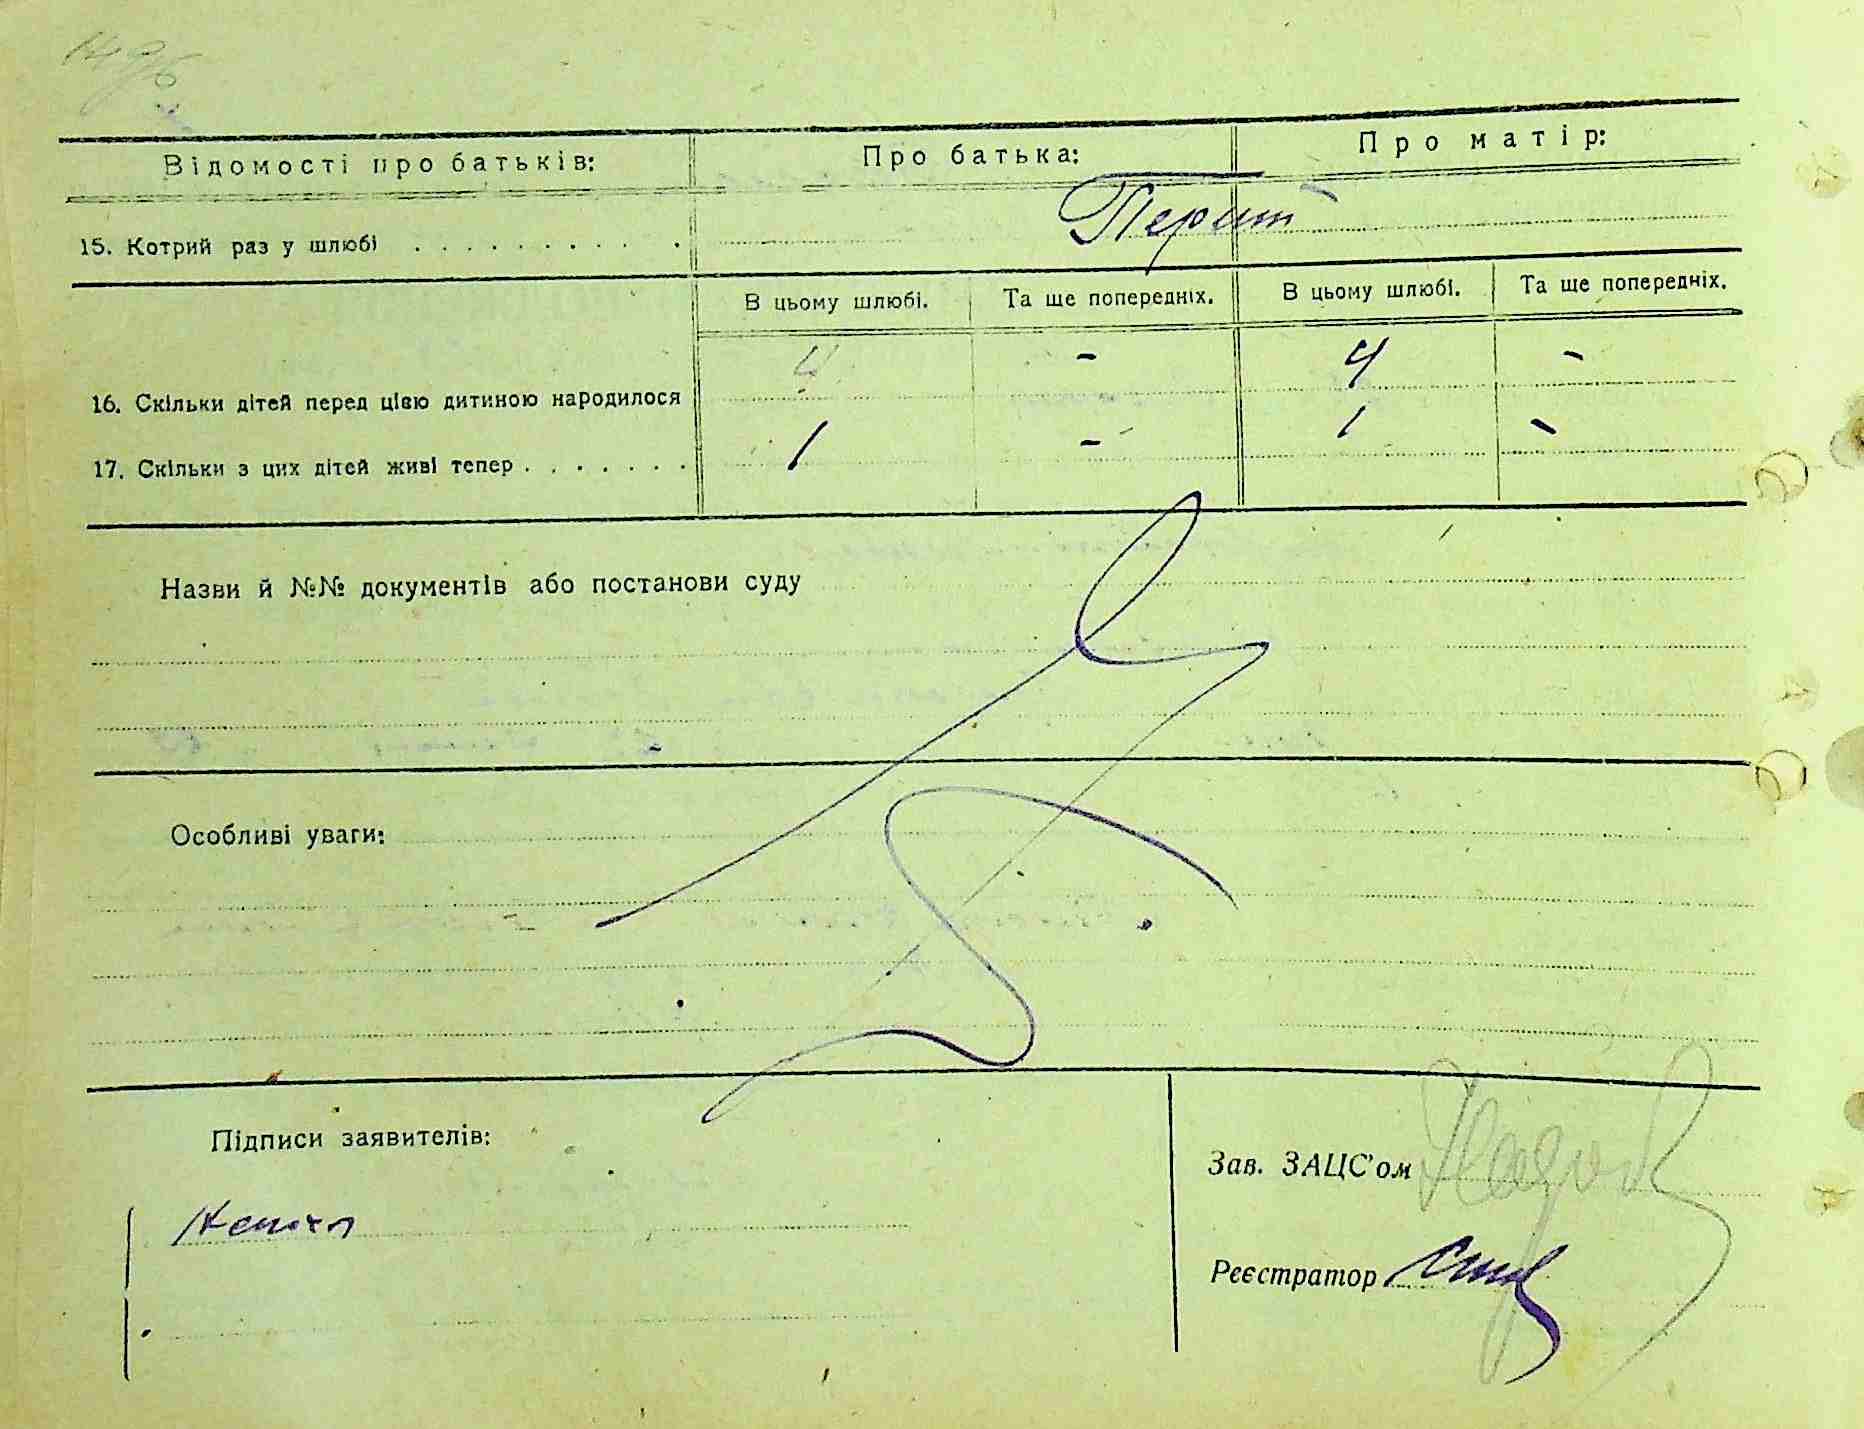 149б
Відомості про батьків: Про батька: Про матір:
15. Котрий раз у шлюбі . . . . . . . . . . Перший
В цьому шлюбі. Та ще попередніх. В цьому шлюбі. Та ще попередніх.
16. Скільки дітей перед цією дитиною народилося 4 - 4 -
17. Скільки з цих дітей живі тепер . . . . . . . 1 - 1 -
Назви й №№ документів або постанови суду
Особливі уваги:
Підписи заявителів:
Зав. ЗАЦС'ом
Реєстратор